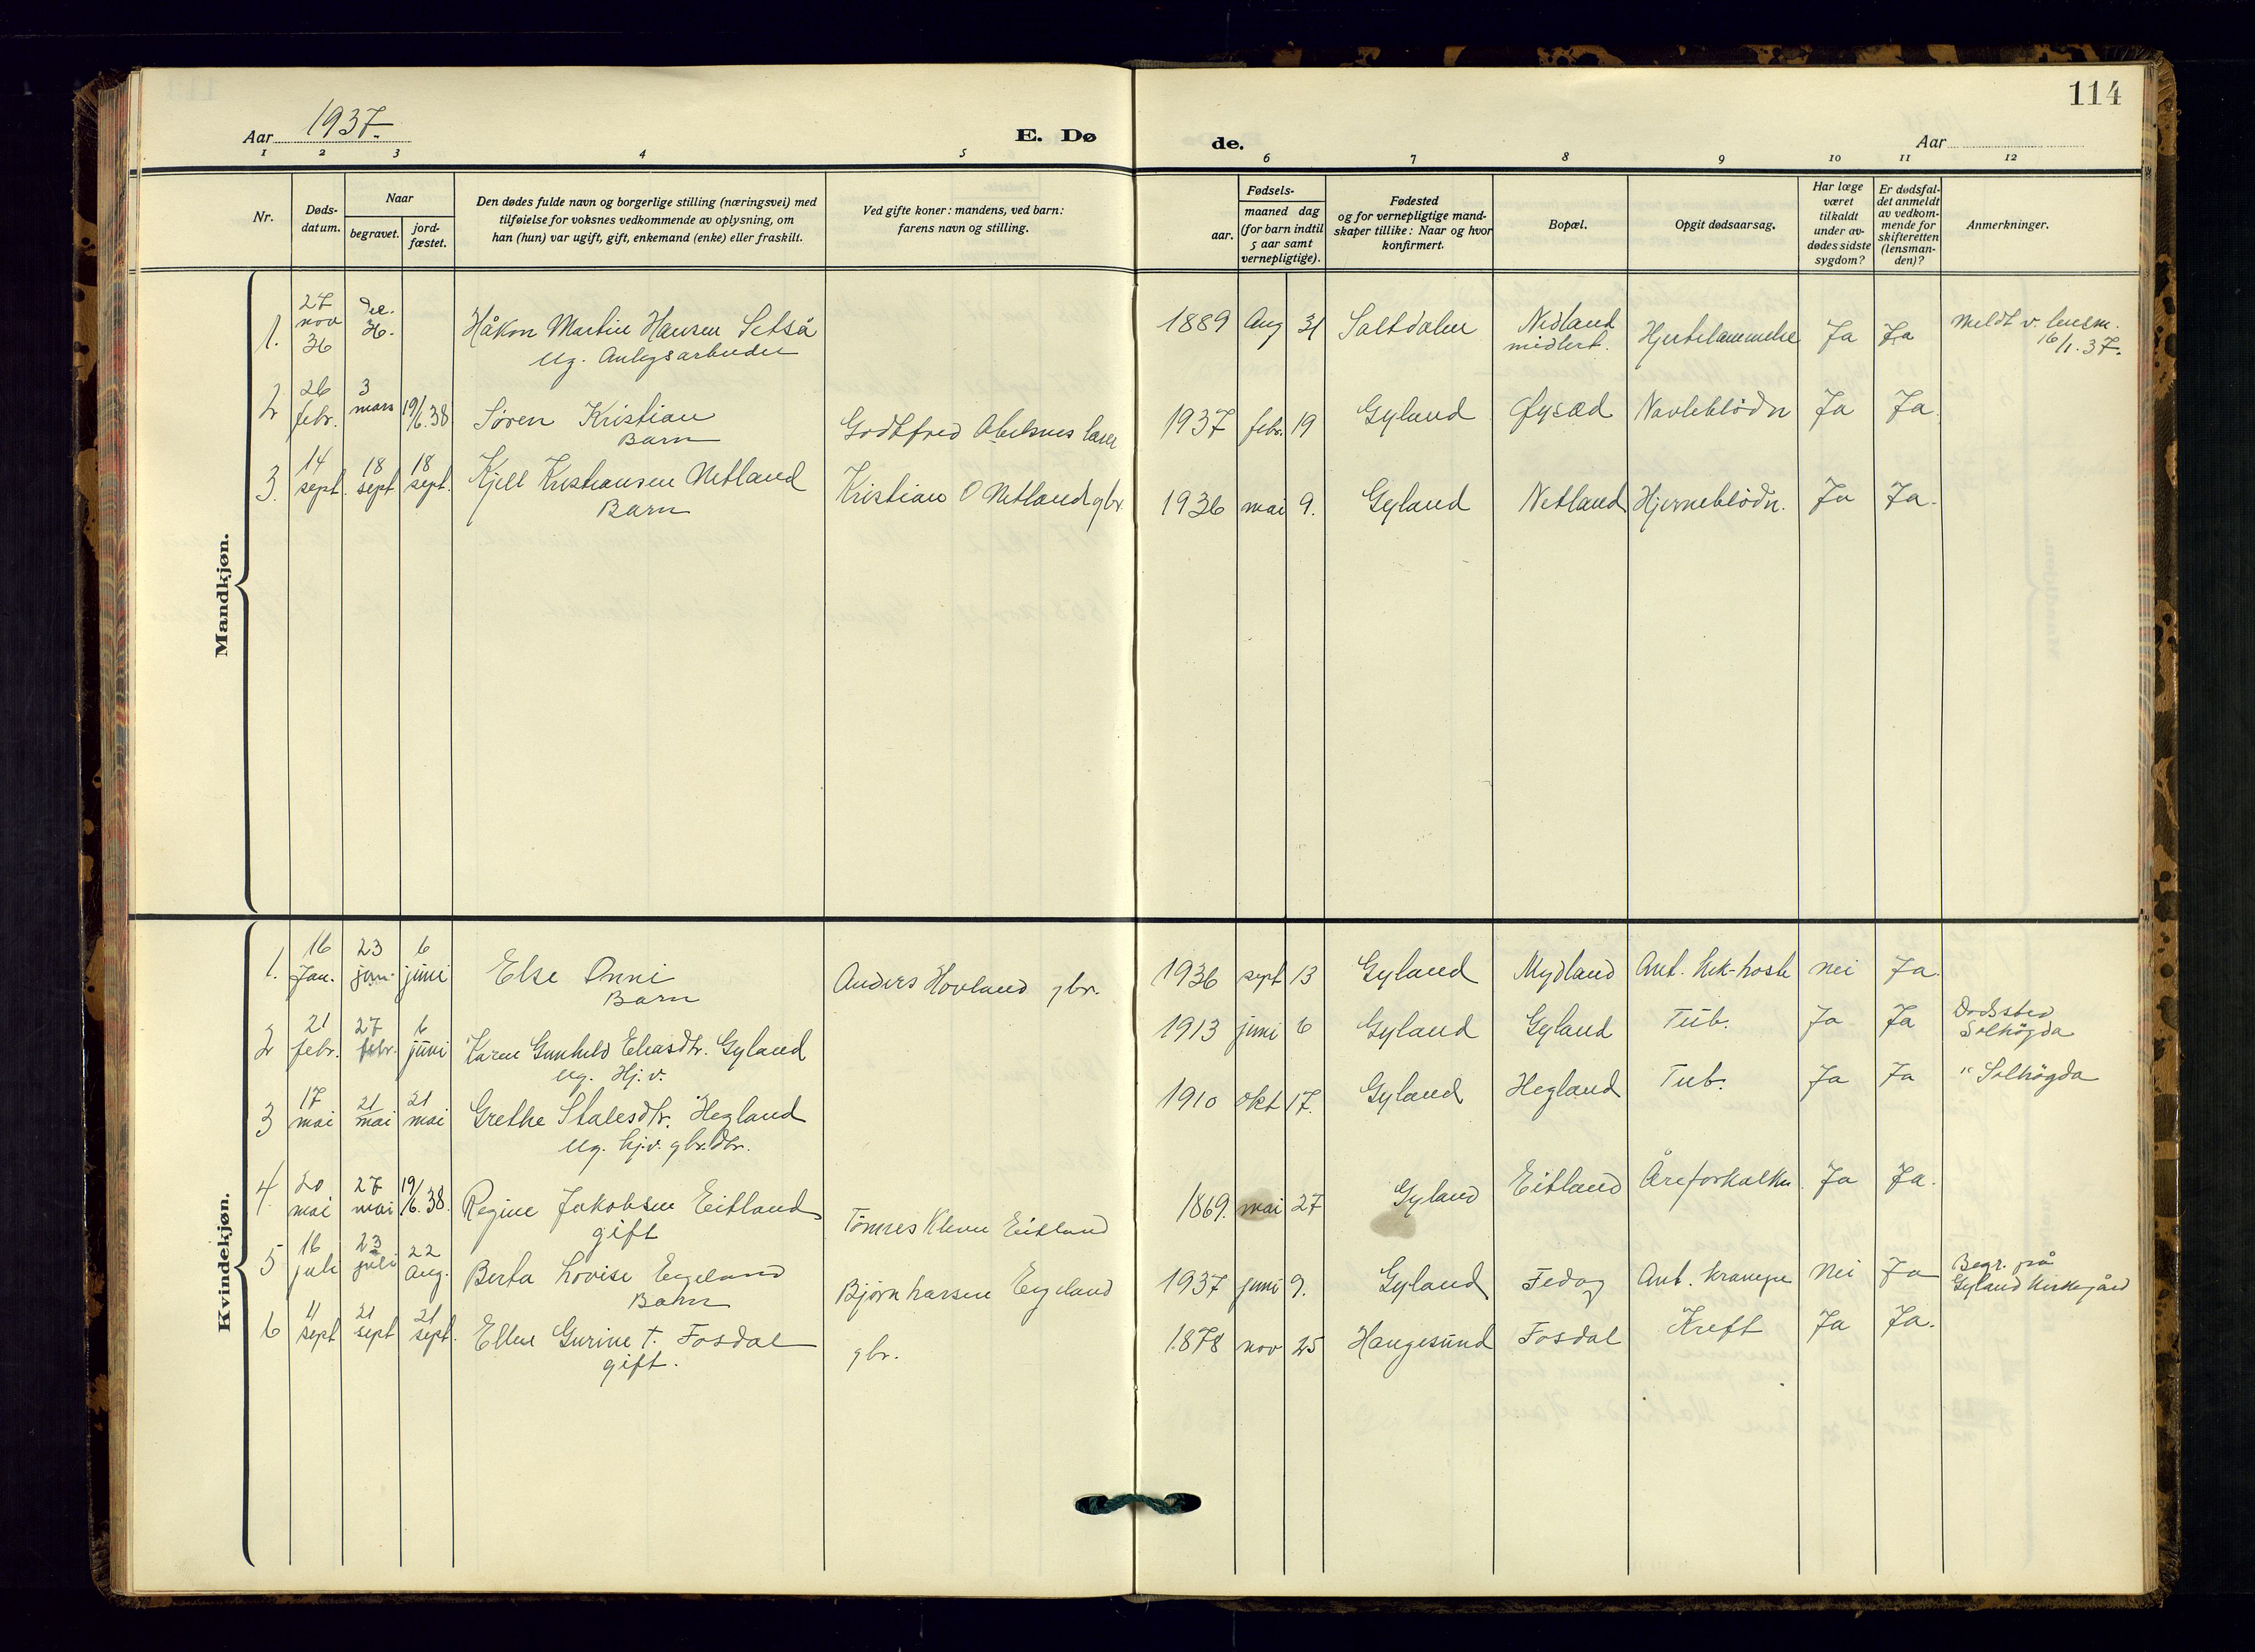 114
Aar 1937.
E. Dø de.
Aar
1 2 3 4 5 6 7 8 9 10 11 12
Nr.
Døds-
datum.
Naar
begravet.
jord-
fæstet.
Den dødes fulde navn og borgerlige stilling (næringsvei) med
tilføielse for voksnes vedkommende av oplysning, om
han (hun) var ugift, gift, enkemand (enke) eller fraskilt.
Ved gifte koner: mandens, ved barn:
farens navn og stilling.
Fødsels-
aar.
maaned dag
(for barn indtil
5 aar samt
vernepligtige).
Fødested
og for vernepligtige mand-
skaper tillike: Naar og hvor
konfirmert.
Bopæl.
Opgit dødsaarsag.
Har læge
været
tilkaldt
under av-
dødes sidste
sygdom?
Er dødsfal-
det anmeldt
av vedkom-
mende for
skifteretten
(lensman-
den)?
Anmerkninger.
Mandkjøn.
1. 27 nov 36 36. Håkon Martin Hansen Setså 1889 Aug 31 Saltdalen Nedland Hjertelammelse Ja Ja Meldt v. lensm.
Ug. Anlegsarbeider midlert. 16/1.37.
2 26 febr. 3 mars 19/6.38 Søren Kristian Godtfred Abelsnes 1937 febr. 19 Gyland Øysæd Navleblødn Ja Ja.
Barn
3. 14 sept. 18 sept 18 sept. Kjell Kristiansen Netland Kristian O Netland gbr. 1936 mai 9. Gyland Netland Hjerneblødn. Ja Ja.
Barn
Kvindekjøn.
1. 16 Jan. 23 jan. 6 juni Else Onni Anders Hovland gbr. 1936 sept 13 Gyland Mydland Ant. kik-hoste nei Ja.
Barn
2 21 febr. 27 febr. 6 juni Karen Gunhild Eliasdtr. Gyland 1913 juni 6 Gyland Gyland Tub. Ja Ja Dødssted
Ug. Hj.v. Solhøgda
3 17 mai 21 mai 21 mai Grethe Stalesdtr. Hegland 1910 okt 17. Gyland Hegland Tub. Ja Ja " Solhøgda
Ug. hj.v. gbr.dtr.
4. 20 mai 27 mai 19/6.38. Regine Jakobsen Eitland Tønnes Kleven Eitland 1869. mai 27 Gyland Eitland Åreforkalkn. Ja Ja.
gift
5 16 juli 23 juli 22 Aug. Berta Lovise Eegeland Bjørn Larsen Eegeland 1937 juni 9. Gyland Fedog Ant. krampe Nei Ja Begr. på
Barn Gyland kirkegård
6 11 sept 21 sept 21 sept. Ellen Gurine T. Fosdal gbr. 1878 nov 25 Haugesund Fosdal Kreft Ja Ja.
gift.